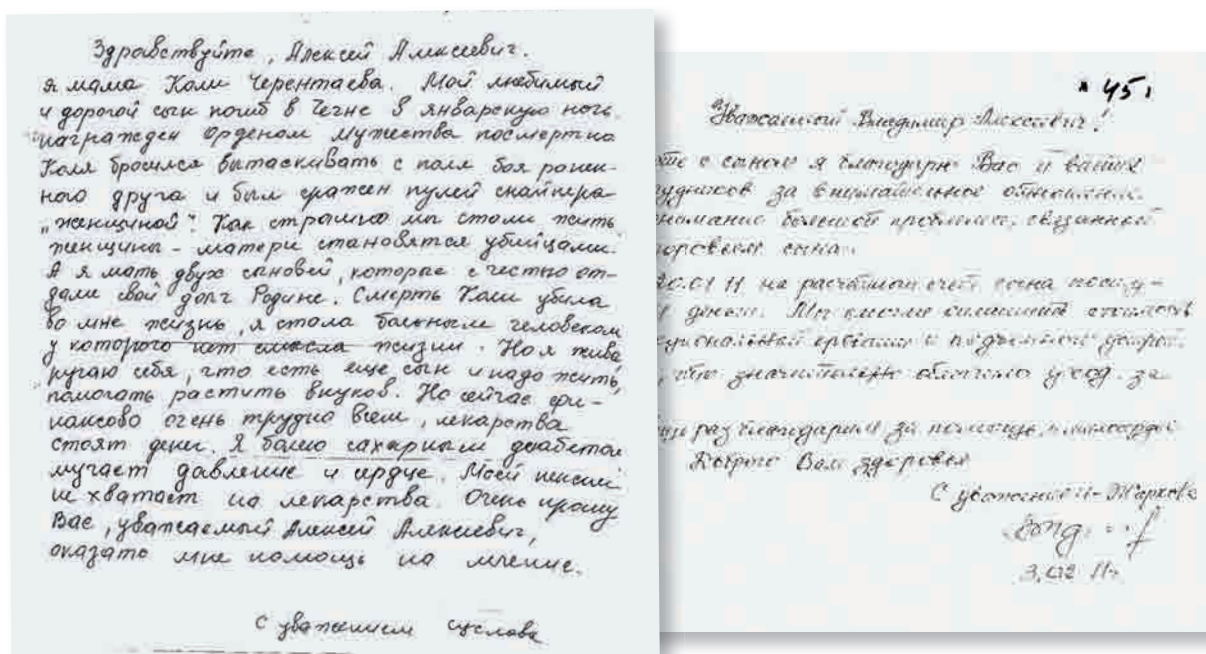 Здравствуйте, Алексей Алексеевич.
Я мама Коли Черентаева. Мой любимый
и дорогой сын погиб в Чечне в январскую ночь.
награжден орденом Мужества посмертно
Коля бросился вытаскивать с поля боя ранен-
ного друга и был сражен пулей снайпера
„женщиной". Как страшно мы стали жить
женщины - матери становятся убийцами.
А я мать двух сыновей, которые с честью от-
дали свой долг Родине. Смерть Коли убила
во мне жизнь, я стала больным человеком
у которого нет смысла жизни. Но я жива,
ругаю себя, что есть еще сын и надо жить,
помогать растить внуков. Но сейчас фи-
нансово очень трудно всем, лекарства
стоят денег. Я болею сахарным диабетом
мучает давление и сердце. Моей пенсии
не хватает на лекарства. Очень прошу
Вас, уважаемый Алексей Алексеевич,
оказать мне помощь на лечение.
С уважением Суслова
45
Уважаемый Владимир Алексеевич!
с сыном я благодарю Вас и ваших
за внимательное отношение
большой проблемы, связанной
сына.
20.01 11 на расчётный счёт сына посту-
денег. Мы смогли стоимость
кровати и подъёмного устрой-
что значительно облегчило уход за
раз благодарим за помощь,
Доброго Вам здоровья
С уважением Жаркова